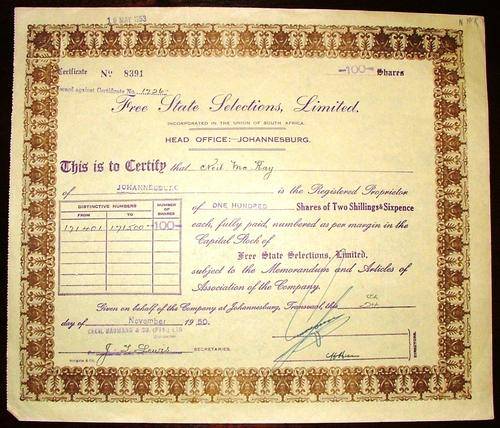 19 MAY 1953
Certificate No 8391
-100- Shares
Issued against Certificate No. 1726
Free State Selections, Limited.
INCORPORATED IN THE UNION OF SOUTH AFRICA.
HEAD OFFICE:-JOHANNESBURG.
This is to Certify that Neil Mc Kay
of JOHANNESBURG is the Registered Proprietor
of ONE HUNDRED Shares of Two Shillings & Sixpence
each, fully paid, numbered as per margin in the
Capital Stock of
Free State Selections, Limited,
subject to the Memorandum and Articles of
Association of the Company.
DISTINCTIVE NUMBERS
NUMBER OF SHARES
FROM TO
171401 171500 100
Given on behalf of the Company at Johannesburg, Transvaal, this
day of November 1950.
SECRETARIES.
J. T. Lewis